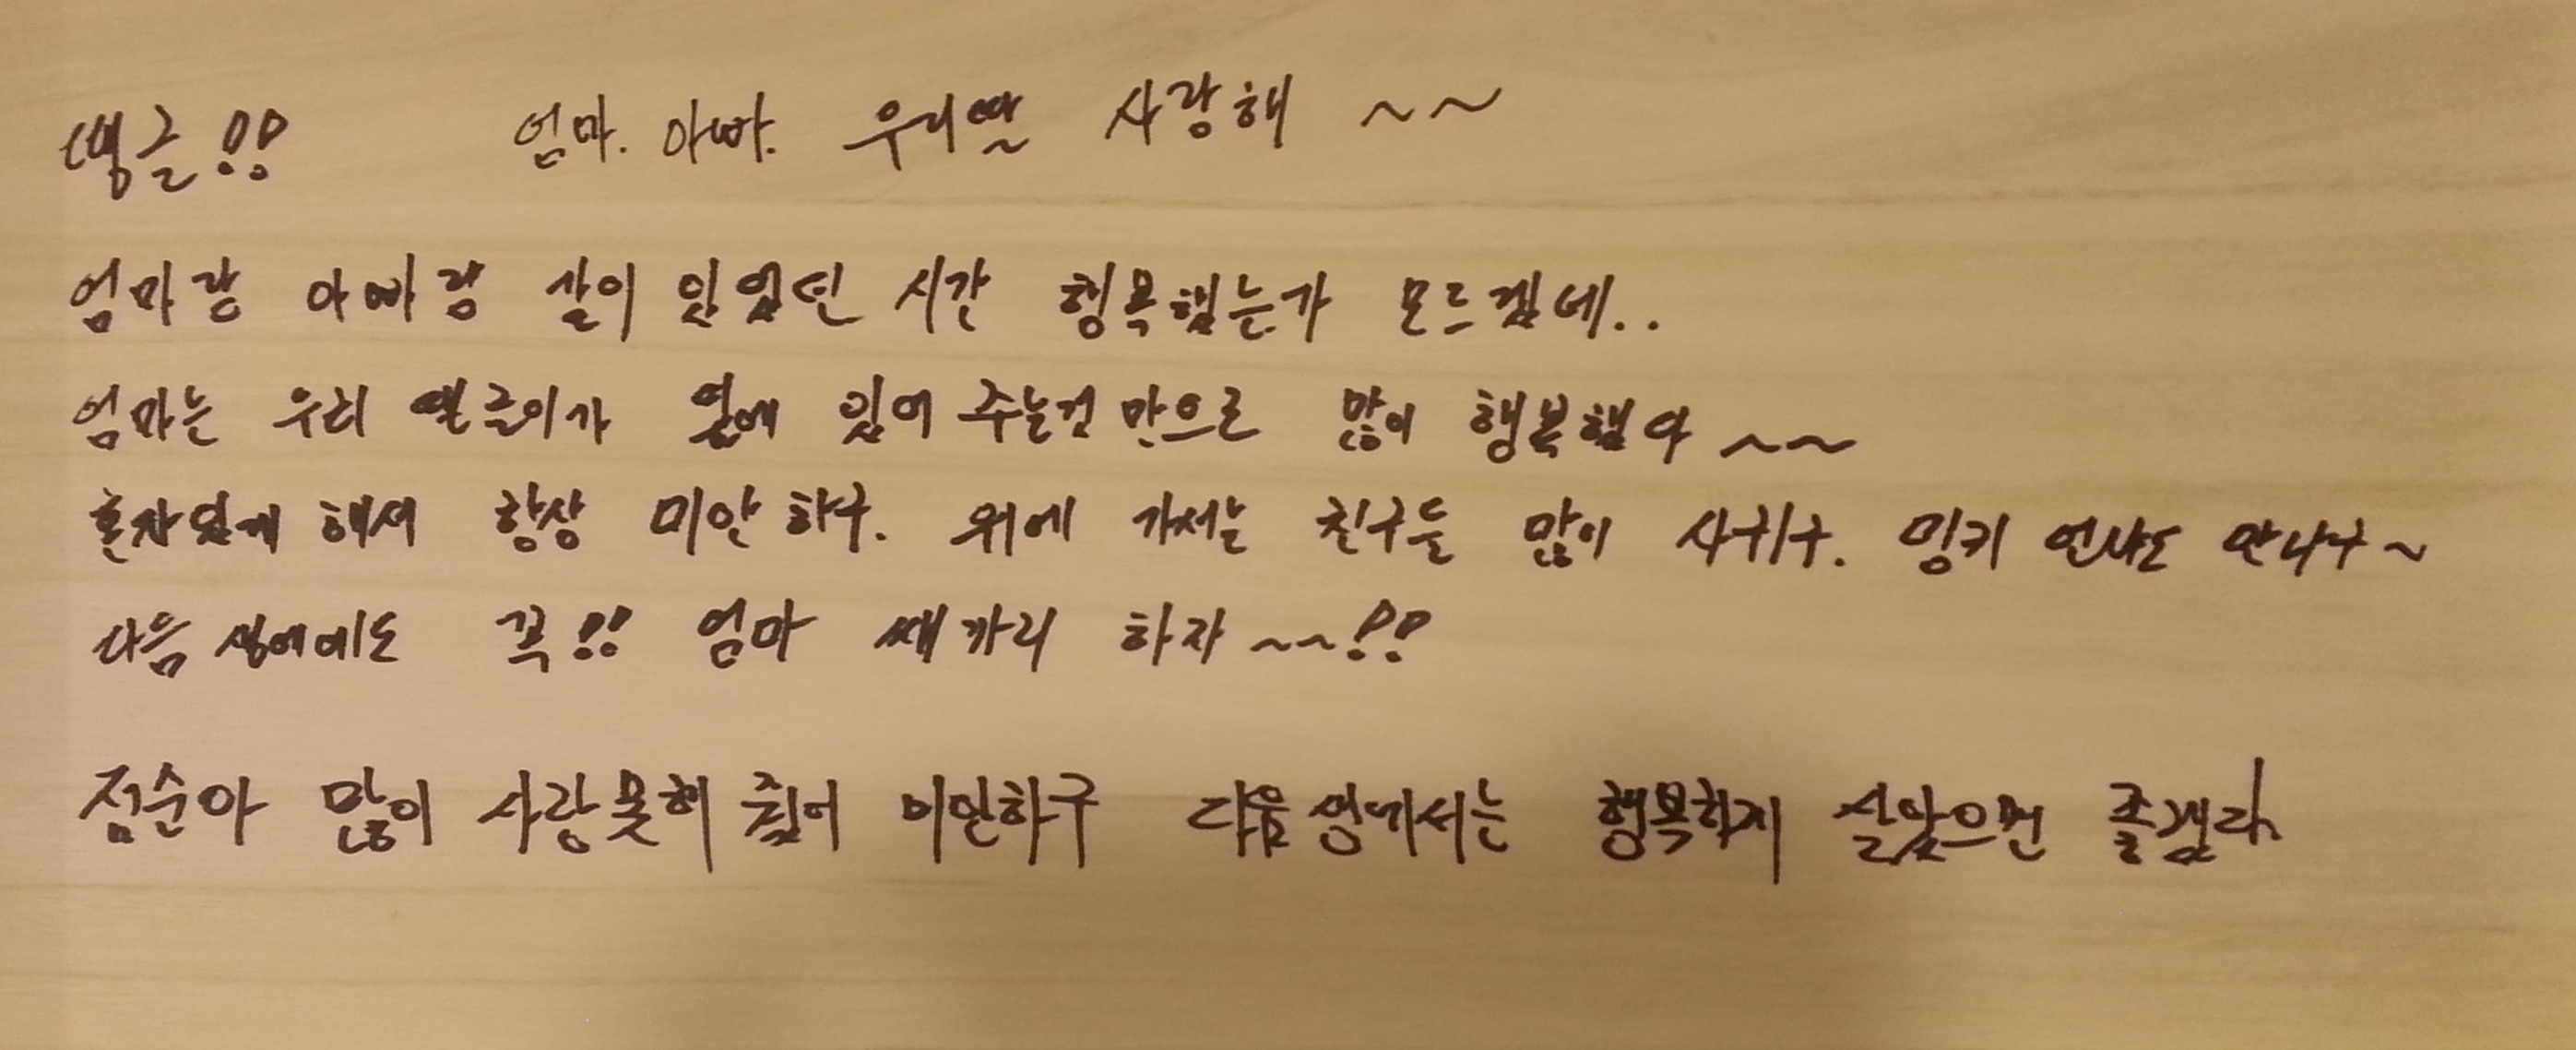 땡글!! 엄마. 아빠. 우리딸 사랑해 ~~
엄마랑 아빠랑 살이 있었던 시간 행복했는가 모르겠네..
엄마는 우리 땡글이가 옆에 있어 주는것 만으로 많이 행복했어 ~~
혼자있게 해서 항상 미안 하구. 위에 가서는 친구들 많이 사귀구. 밍키 언니도 만나구~
다음 생에에도 꼭!! 엄마 쌔까리 하자 ~~!!
점순아 많이 사랑 못해 줬어 미안하구 다음 생에서는 행복하지 살았으면 좋겠다